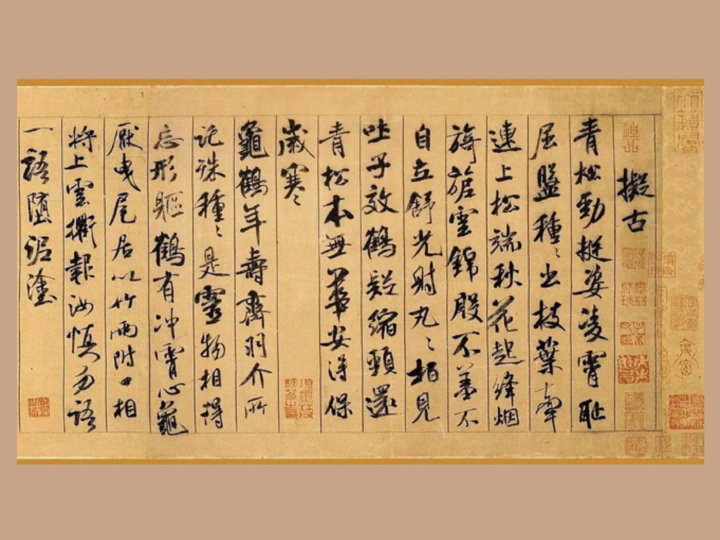 擬古
青松勁挺姿凌霄耻
屈盤種〻出枝葉牽
連上松端秋花起絳烟
旖旎雲錦殷不羞不
自立舒光射丸〻柏見
吐子效鶴疑縮頸還
青松本無華安得保
歲寒
龜鶴年壽齊羽介所
託殊種〻是靈物相得
忘形軀鶴有沖霄心龜
厭曳尾居以竹兩附口相
將上雲衢報汝慎勿語
一語墮泥塗